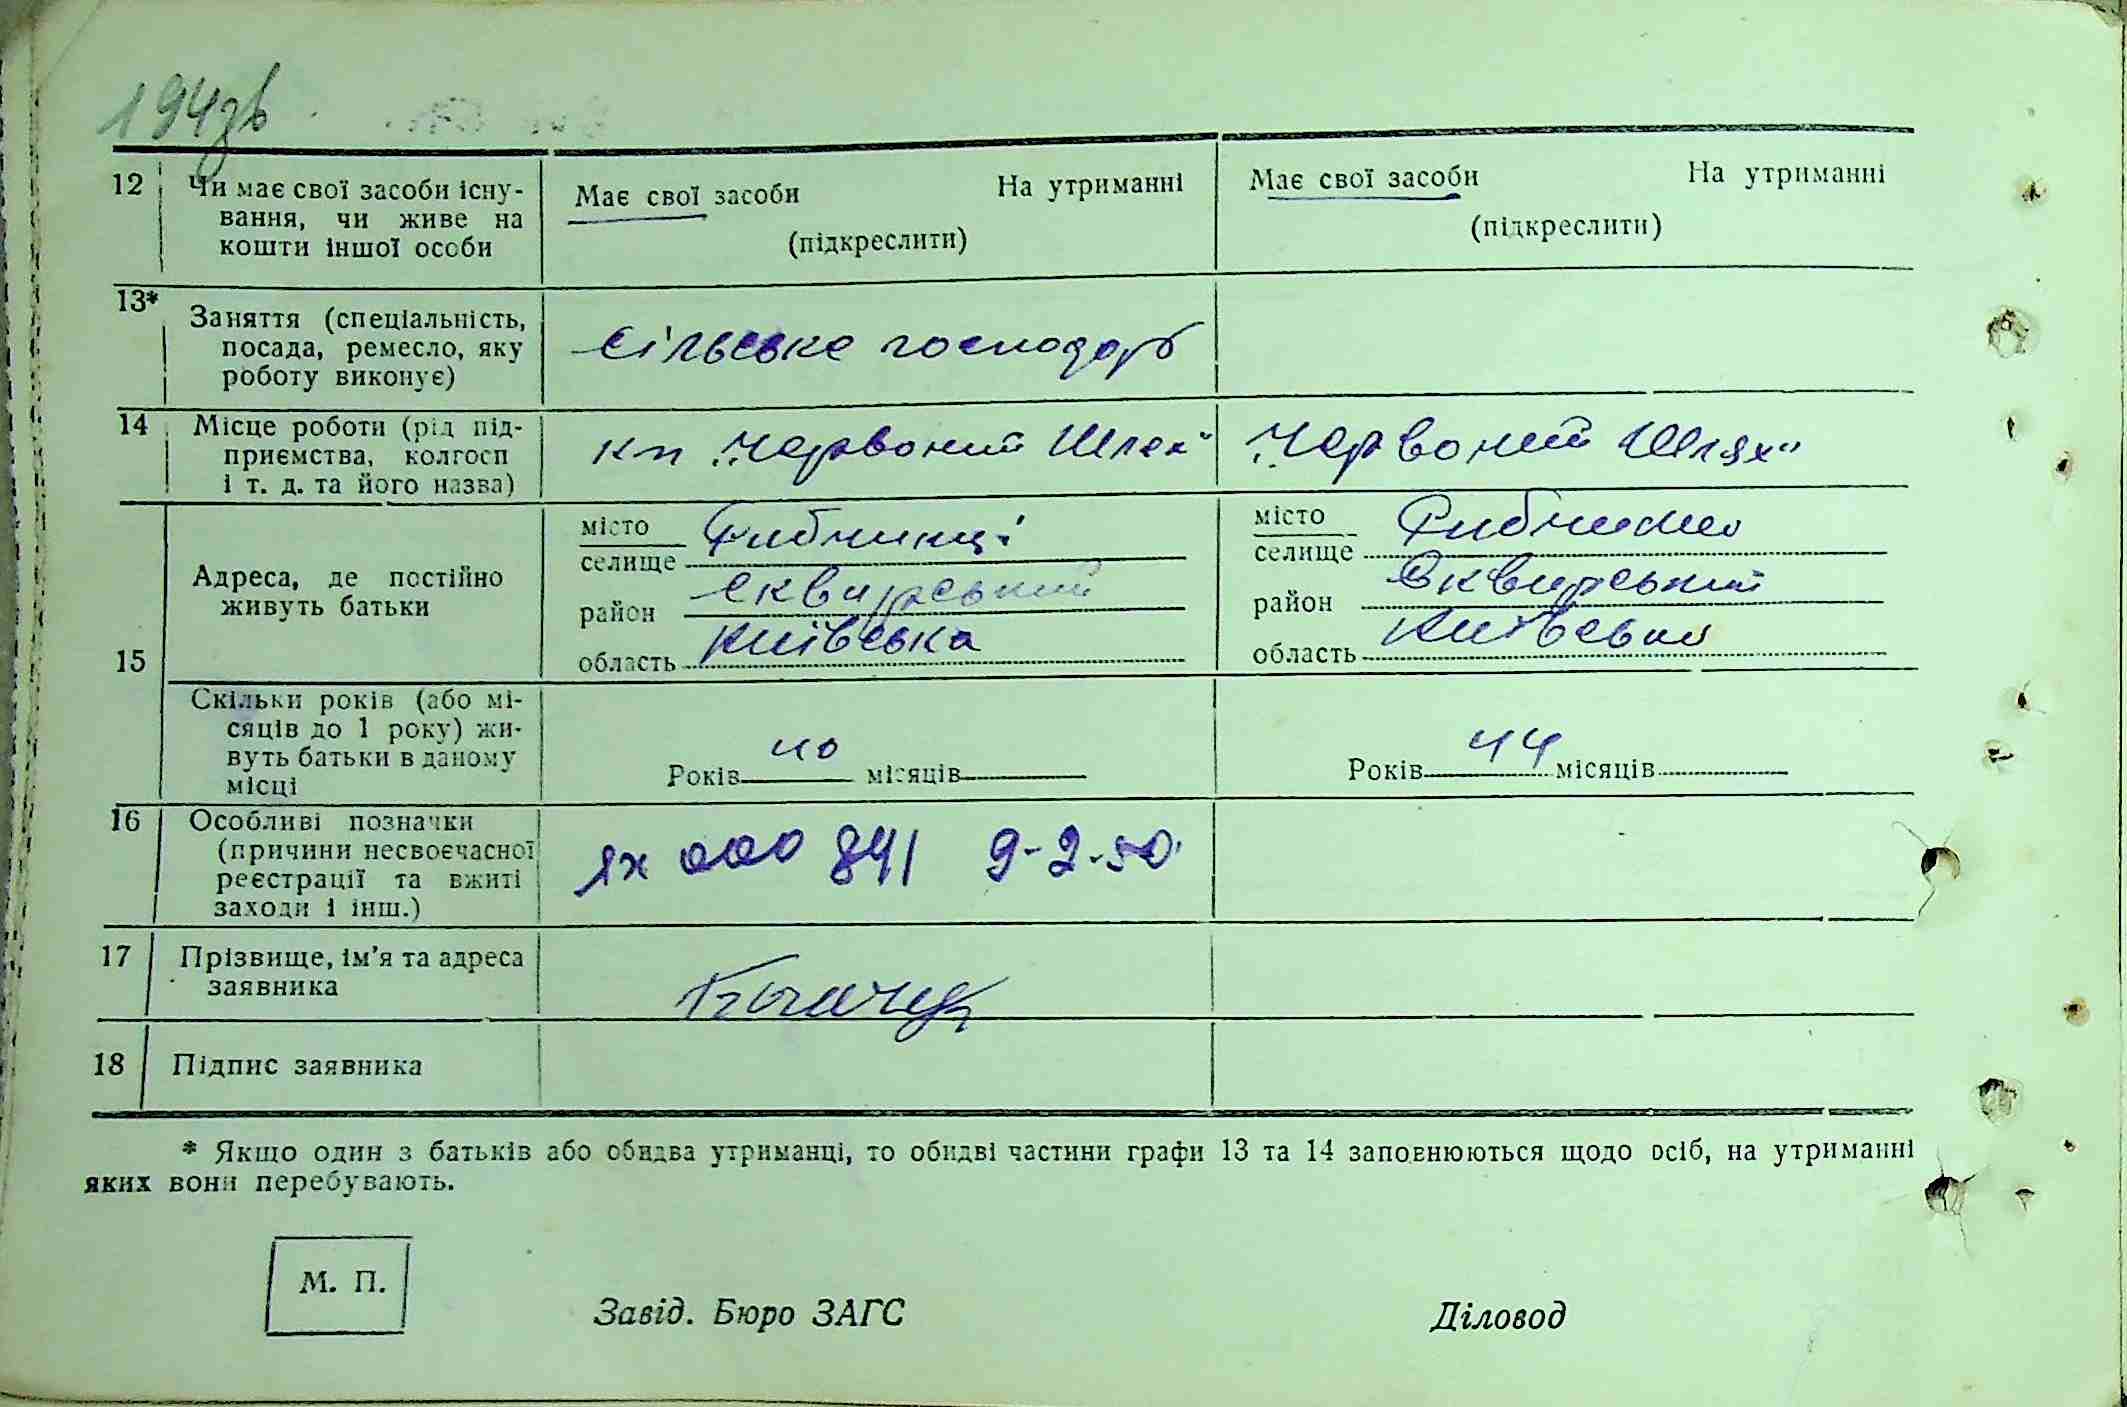 12 Чи має свої засоби існу-
вання, чи живе на
кошти іншої особи
Має свої засоби На утриманні
(підкреслити)
Має свої засоби На утриманні
(підкреслити)
13* Заняття (спеціальність,
посада, ремесло, яку
роботу виконує)
Сільське господар
14 Місце роботи (рід під-
приємства, колгосп
і т. д. та його назва)
кп „Червоний Шлях"
„Червоний Шлях"
15 Адреса, де постійно
живуть батьки
місто
селище Рибчинці
район Сквирський
область Київська
місто
селище
район Сквирський
область Київська
Скільки років (або мі-
сяців до 1 року) жи-
вуть батьки в даному
місці
Років 40 місяців
Років 44 місяців
16 Особливі позначки
(причини несвоєчасної
реєстрації та вжиті
заходи і інш.)
ЯХ 000 841 9-2-50.
17 Прізвище, ім'я та адреса
заявника
18 Підпис заявника
* Якщо один з батьків або обидва утриманці, то обидві частини графи 13 та 14 заповнюються щодо осіб, на утриманні
яких вони перебувають.
М. П.
Завід. Бюро ЗАГС
Діловод